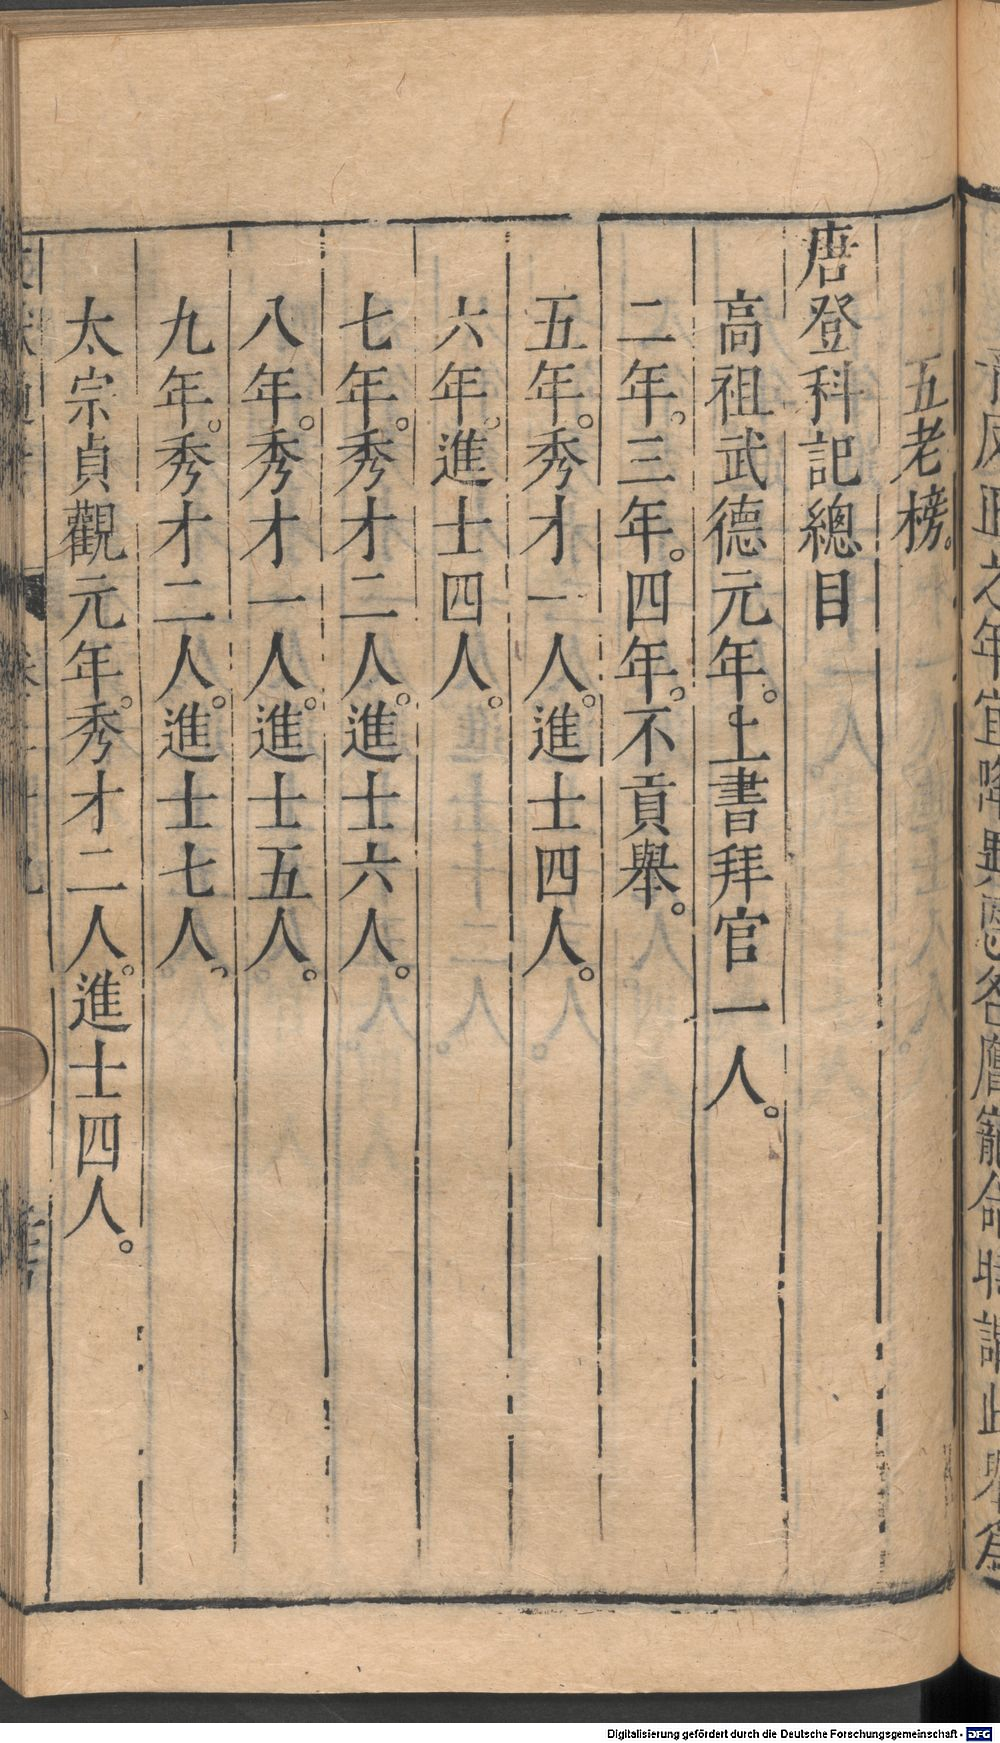 五老榜。
唐登科記總目
高祖武德元年。上書拜官一人。
二年。三年。四年。不貢舉。
五年。秀才一人。進士四人。
六年。進士四人。
七年。秀才二人。進士六人。
八年。秀才一人。進士五人。
九年。秀才二人。進士七人。
太宗貞觀元年。秀才二人。進士四人。
Digitalisierung gefördert durch die Deutsche Forschungsgemeinschaft - DFG